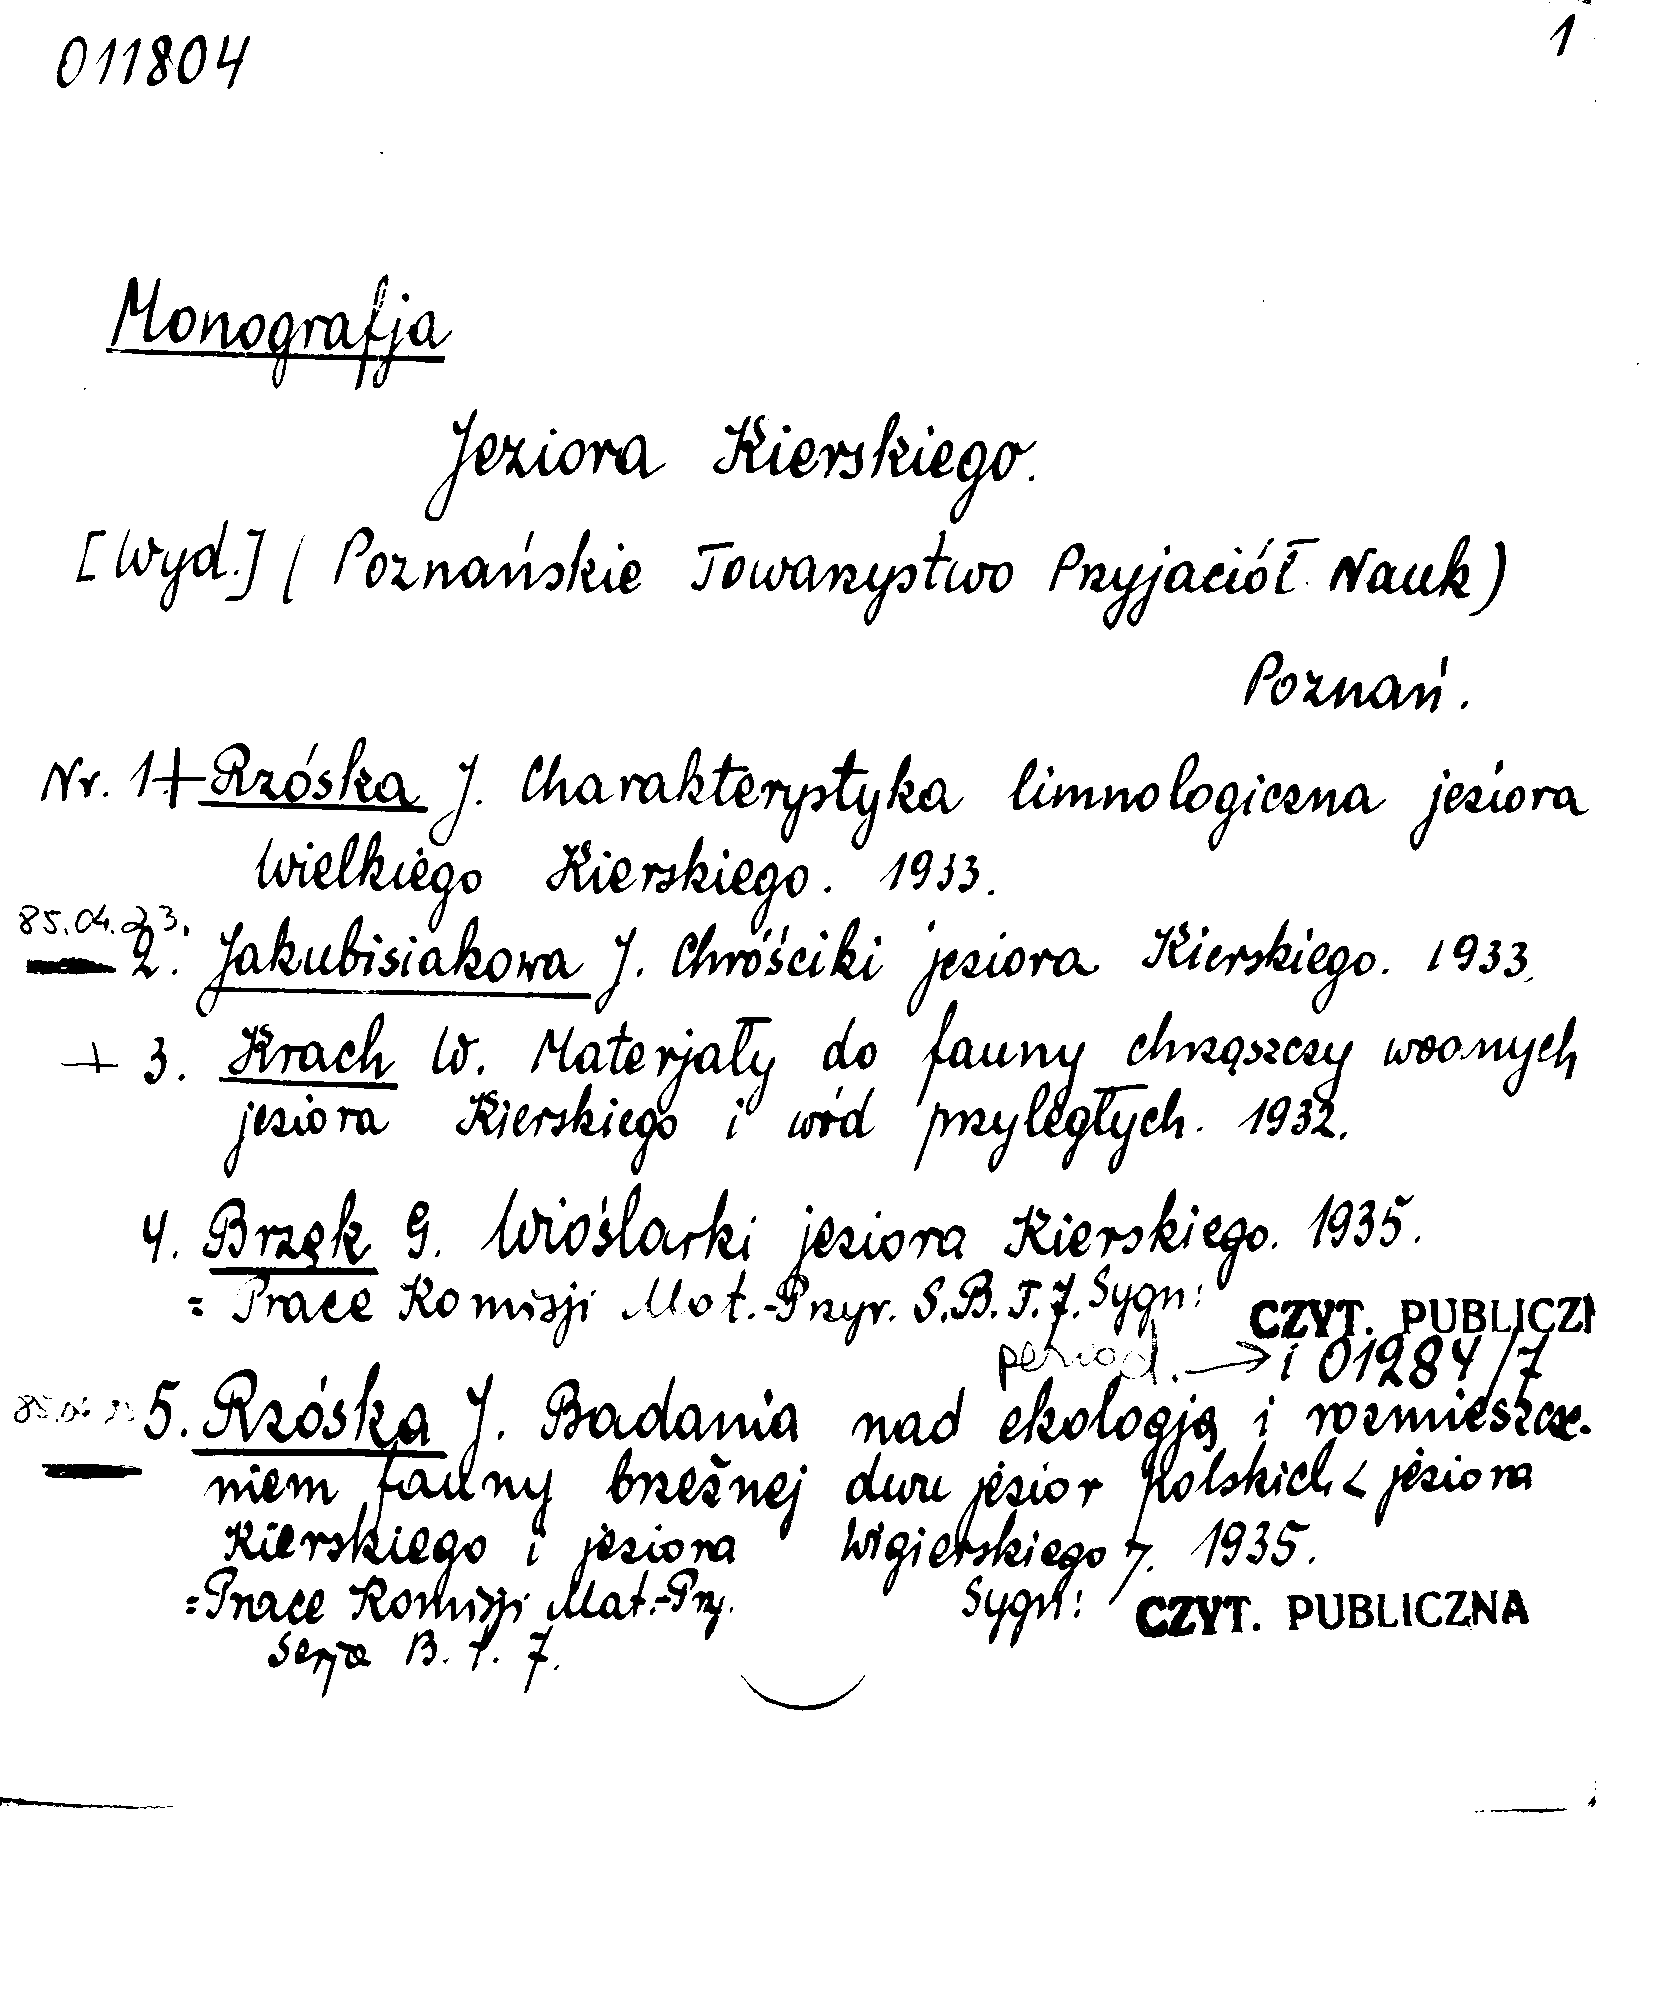 011804
1
Monografja
Jeziora Kierskiego.
[Wyd.] (Poznańskie Towarzystwo Przyjaciół Nauk)
Poznań.
Nr. 1+ Rzóska J. Charakterystyka limnologiczna jeziora
Wielkiego Kierskiego. 1933.
85.04.23.
2. Jakubisiakowa J. Chróściki jeziora Kierskiego. 1933.
+ 3. Krach W. Materjały do fauny chrząszczy wodnych
jeziora Kierskiego i wód przyległych. 1932.
4. Brzęk G. Wioślarki jeziora Kierskiego. 1935.
= Prace Komisji Mat.-Przyr. S.B.T.7. Sygn: CZYT. PUBLICZN
period. → i 01284/7
5. Rzóska J. Badania nad ekologją i rozmieszcze-
niem fauny brzeżnej dwu jezior polskich < jeziora
Kierskiego i jeziora Wigierskiego >. 1935.
=Prace Komisji Mat.-Przy. Sygn: CZYT. PUBLICZNA
Serja B. t. 7.